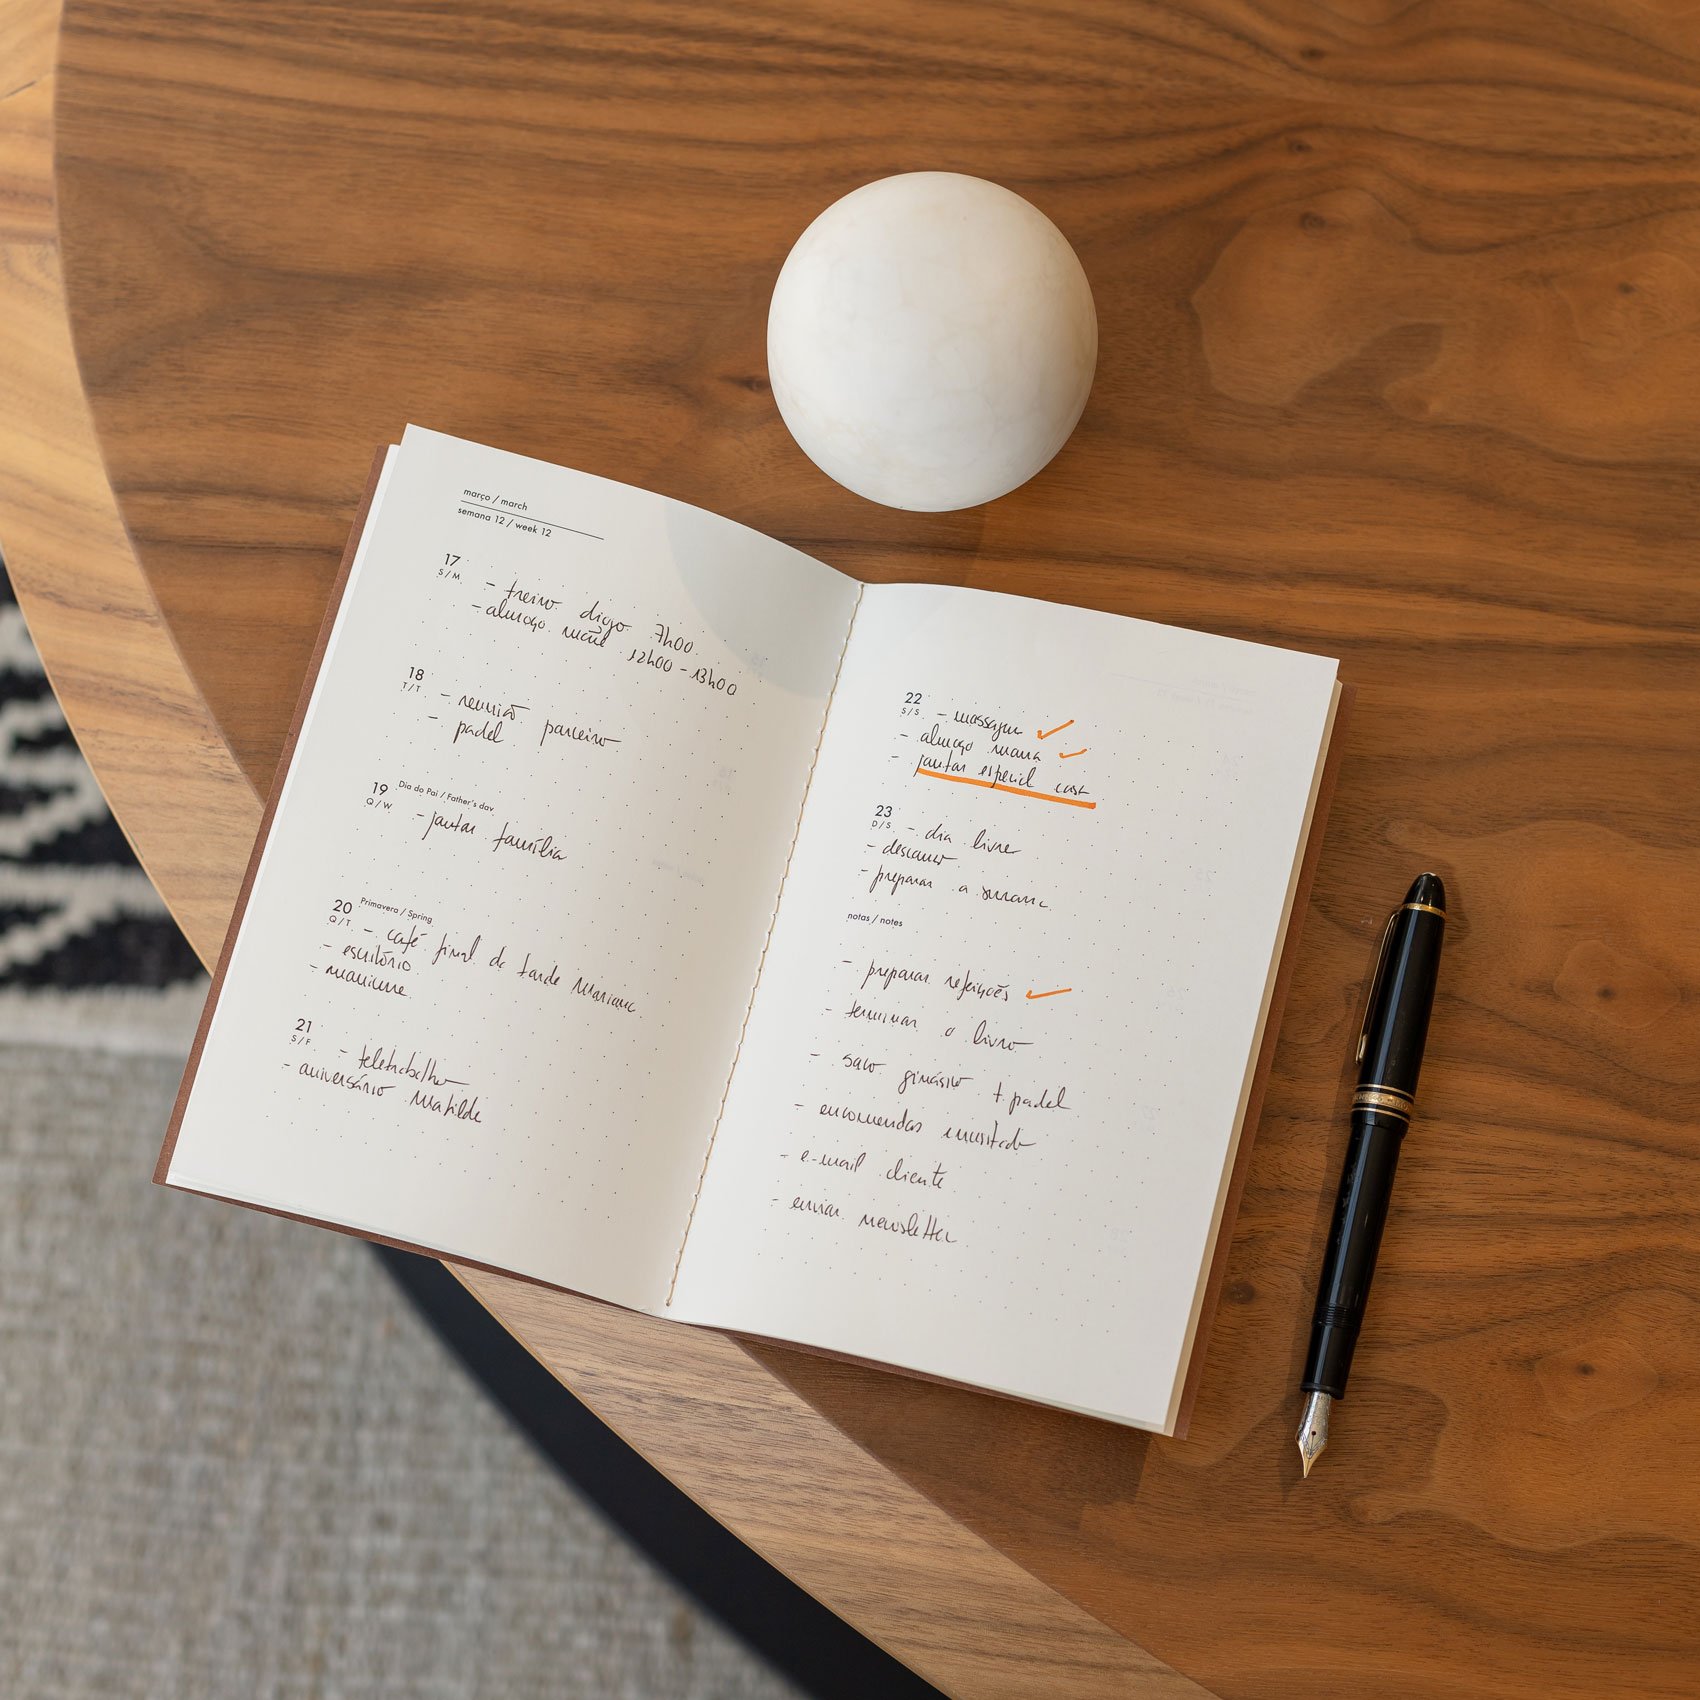 março / march
semana 12 / week 12
17
S / M
- treino diogo 7h00
- almoço mãe 12h00 - 13h00
18
T / T
- reunião parceiro
- padel
19 Dia do Pai / Father's day
Q / W
- jantar família
20 Primavera / Spring
Q / T
- café final da tarde Mariana
- escritório
- manicure
21
S / F
- teletrabalho
- aniversário Matilde
22
S / S
- massagem ✓
- almoço mana ✓
- jantar especial
23
D / S
- dia livre
- descanso
- preparar a semana
notas / notes
- preparar refeições ✓
- terminar o livro
- saco ginásio + padel
- encomendas
- e-mail cliente
- enviar newsletter